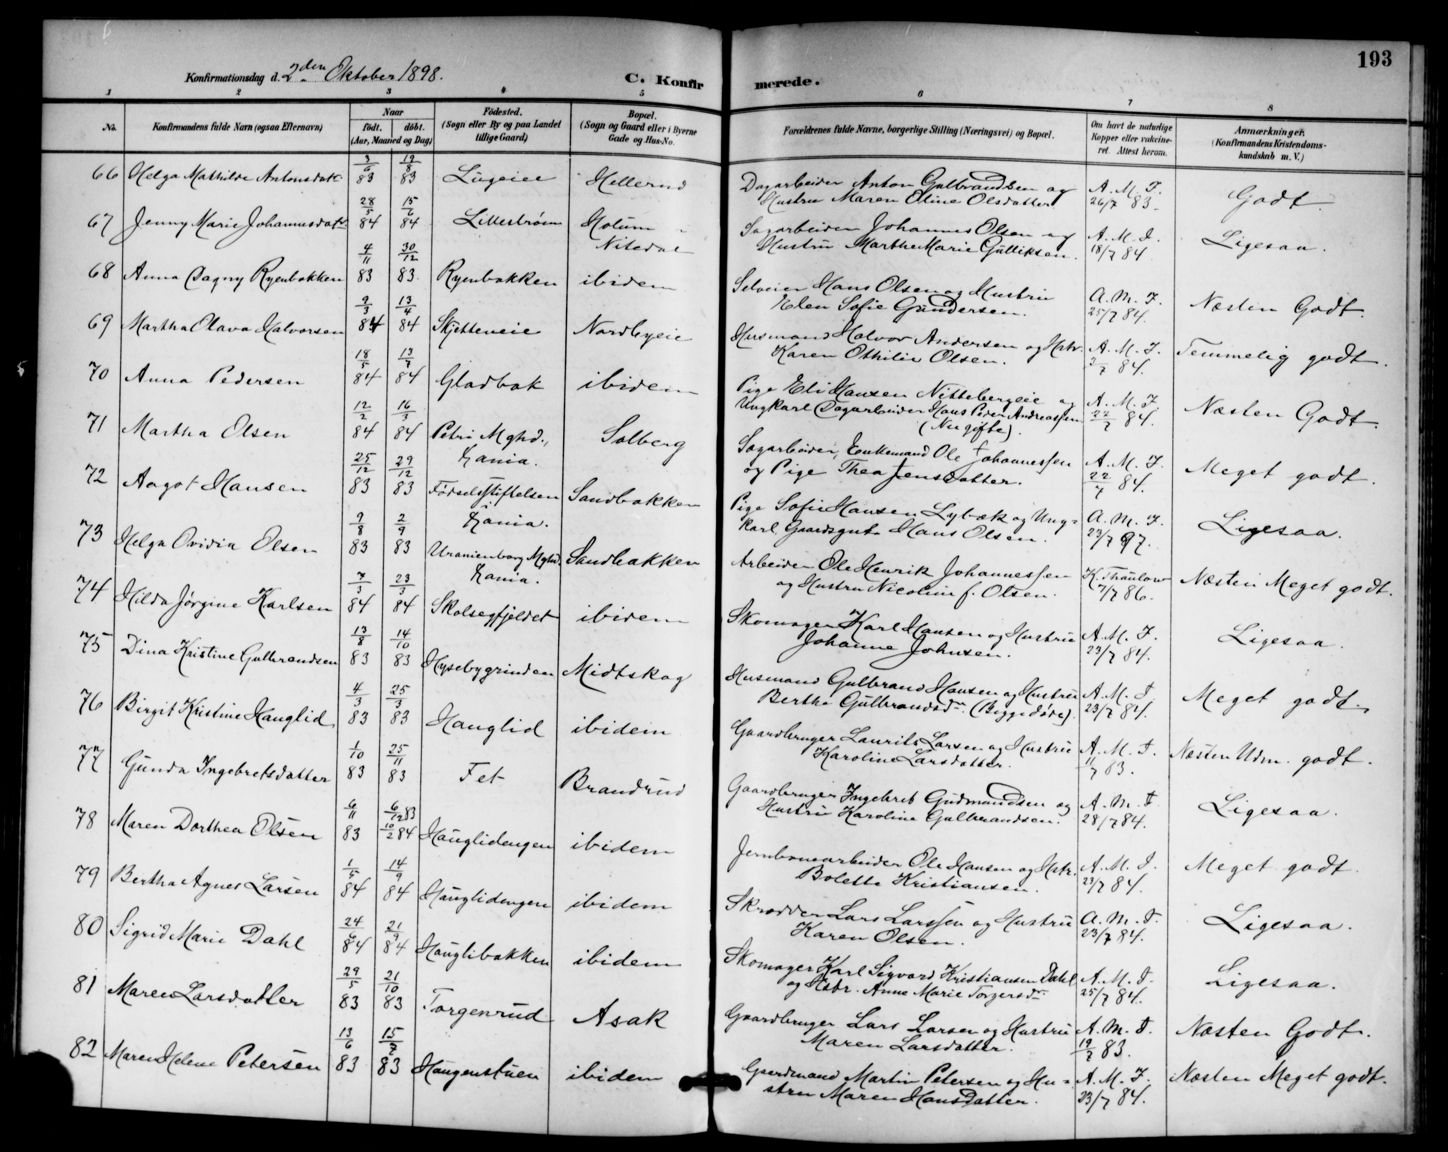 193
Konfirmationsdag d. 2den Oktober 1898.
C. Konfirmerede.
1 2 3 4 5 6 7 8
No. Konfirmandens fulde Navn (ogsaa Efternavn) Naar født. døbt. (Aar, Maaned og Dag) Fødested. (Sogn eller By og paa Landet tillige Gaard) Bopæl. (Sogn og Gaard eller i Byerne Gade og Hus-No. Forældrenes fulde Navne, borgerlige Stilling (Næringsvei) og Bopæl. Om havt de naturlige Kopper eller vakcineret. Attest herom. Anmærkninger. (Konfirmandens Kristendomskundskab m. V.)
66 Helga Mathilde Antonsdatt. 3/6 83 19/8 83 Lugeiee Hellerud Dagarbeider Anton Gulbrandsen og
Hustru Maren Eline Olsdatter A. M. F. 26/7 83. Godt.
67 Jenny Marie Johannesdatt. 28/5 84 15/6 84 Lillestrøm Holum Nitedal Sagarbeider Johannes Olsen og
Hustru Marthe Marie Gulliksen. A. M. F. 18/7 84. Ligesaa.
68 Anna Dagny Ryenbakken 4/11 83 30/12 83. Ryenbakken ibidem Selveier Hans Olsen og Hustru
Elen Sofie Gundersen. A. M. F. 25/7 84. Næsten Godt.
69 Martha Olava Halvorsen 2/3 84 13/4 84 Skjetteneie Nordbyeie Husmand Halvor Andersen og Hstr.
Karen Othilie Olsen. A. M. F. 84. Temmelig godt.
70 Anna Pedersen 18/5 84 13/7 84 Gladbak ibidem Pige Eli Hansen Nittebergeie og
Ungkarl Dagarbeider Hans Peder Andreassen
(Nu gifte). A. M. F. 22/7 84. Næsten Godt.
71 Martha Olsen 12/2 84 16/3 84 Petri Mghd., Xania. Solberg Sagarbeider, Enkemand Ole Johannessen
og Pige Thea Jensdatter. A. M. F. 22/7 84. Meget godt.
72 Aagot Hansen 25/12 83 29/12 83 Fødselsstiftelsen Xania. Sandbakken Pige Sofie Hansen Lybæk og Ung-
karl Gaardsgut Hans Olsen. A. M. F. 23/7 97. Ligesaa.
73 Helga Ovidia Olsen 9/8 83 2/9 83 Uranienborg Mghd. Xania. Sandbakken Arbeider Ole Henrik Johannessen
og Hustru Nicoline f. Olsen. K. Thaulow 7/7 86. Næsten Meget godt.
74 Hilda Jørgine Karlsen 7/3 84 23/3 84 Skolsegfjeldet ibidem Skomager Karl Hansen og Hustru
Johanne Johnsen. A. M. F. 23/7 84. Ligesaa.
75 Dina Kristine Gulbrandsen 13/8 83 14/10 83 Hysebygrinden Midtskog Husmand Gulbrand Hansen og Hustru
Berthe Gulbrandsdr. (Begge døde). A. M. F. 23/7 84. Meget godt.
76 Birgit Kristine Hauglid 4/3 83 25/3 83 Hauglid ibidem Gaardbruger Laurits Larsen og Hustru
Karoline Larsdatter. A. M. F. 11/7 83. Næsten Udm. godt.
77 Gunda Ingebretsdatter 1/10 83 25/11 83 Fet Brandrud Gaardbruger Ingebret Gudmundsen og
Hustru Karoline Gulbrandsen. A. M. F. 28/7 84. Ligesaa.
78 Maren Dorthea Olsen 6/11 83 6/12 83 10/2 84 Hauglidengen ibidem Jernbanearbeider Ole Hansen og Hstr.
Bolette Kristiansen. A. M. F. 23/7 84. Meget godt.
79 Bertha Agnes Larsen 1/5 84 14/9 84 Hauglidengen ibidem Skrædder Lars Larssen og Hustru
Karen Olsen. A. M. F. 23/7 84. Ligesaa.
80 Sigrid Marie Dahl 24/6 84 21/9 84 Hauglibakken ibidem Skomager Karl Sigvard Kristiansen Dahl
og Hstr. Anne Marie Torgersdr A. M. F. 25/7 84. Ligesaa.
81 Maren Larsdatter 29/5 83 21/10 83 Torgenrud Asak Gaardbruger Lars Larsen og Hustru
Maren Larsdatter. A. M. F. 19/7 83. Næsten Godt.
82 Maren Helene Petersen 13/6 83 15/7 83 Haugenstuen ibidem Gaardmand Martin Petersen og Hu-
stru Maren Hansdatter. A. M. F. 23/7 84. Næsten Meget godt.